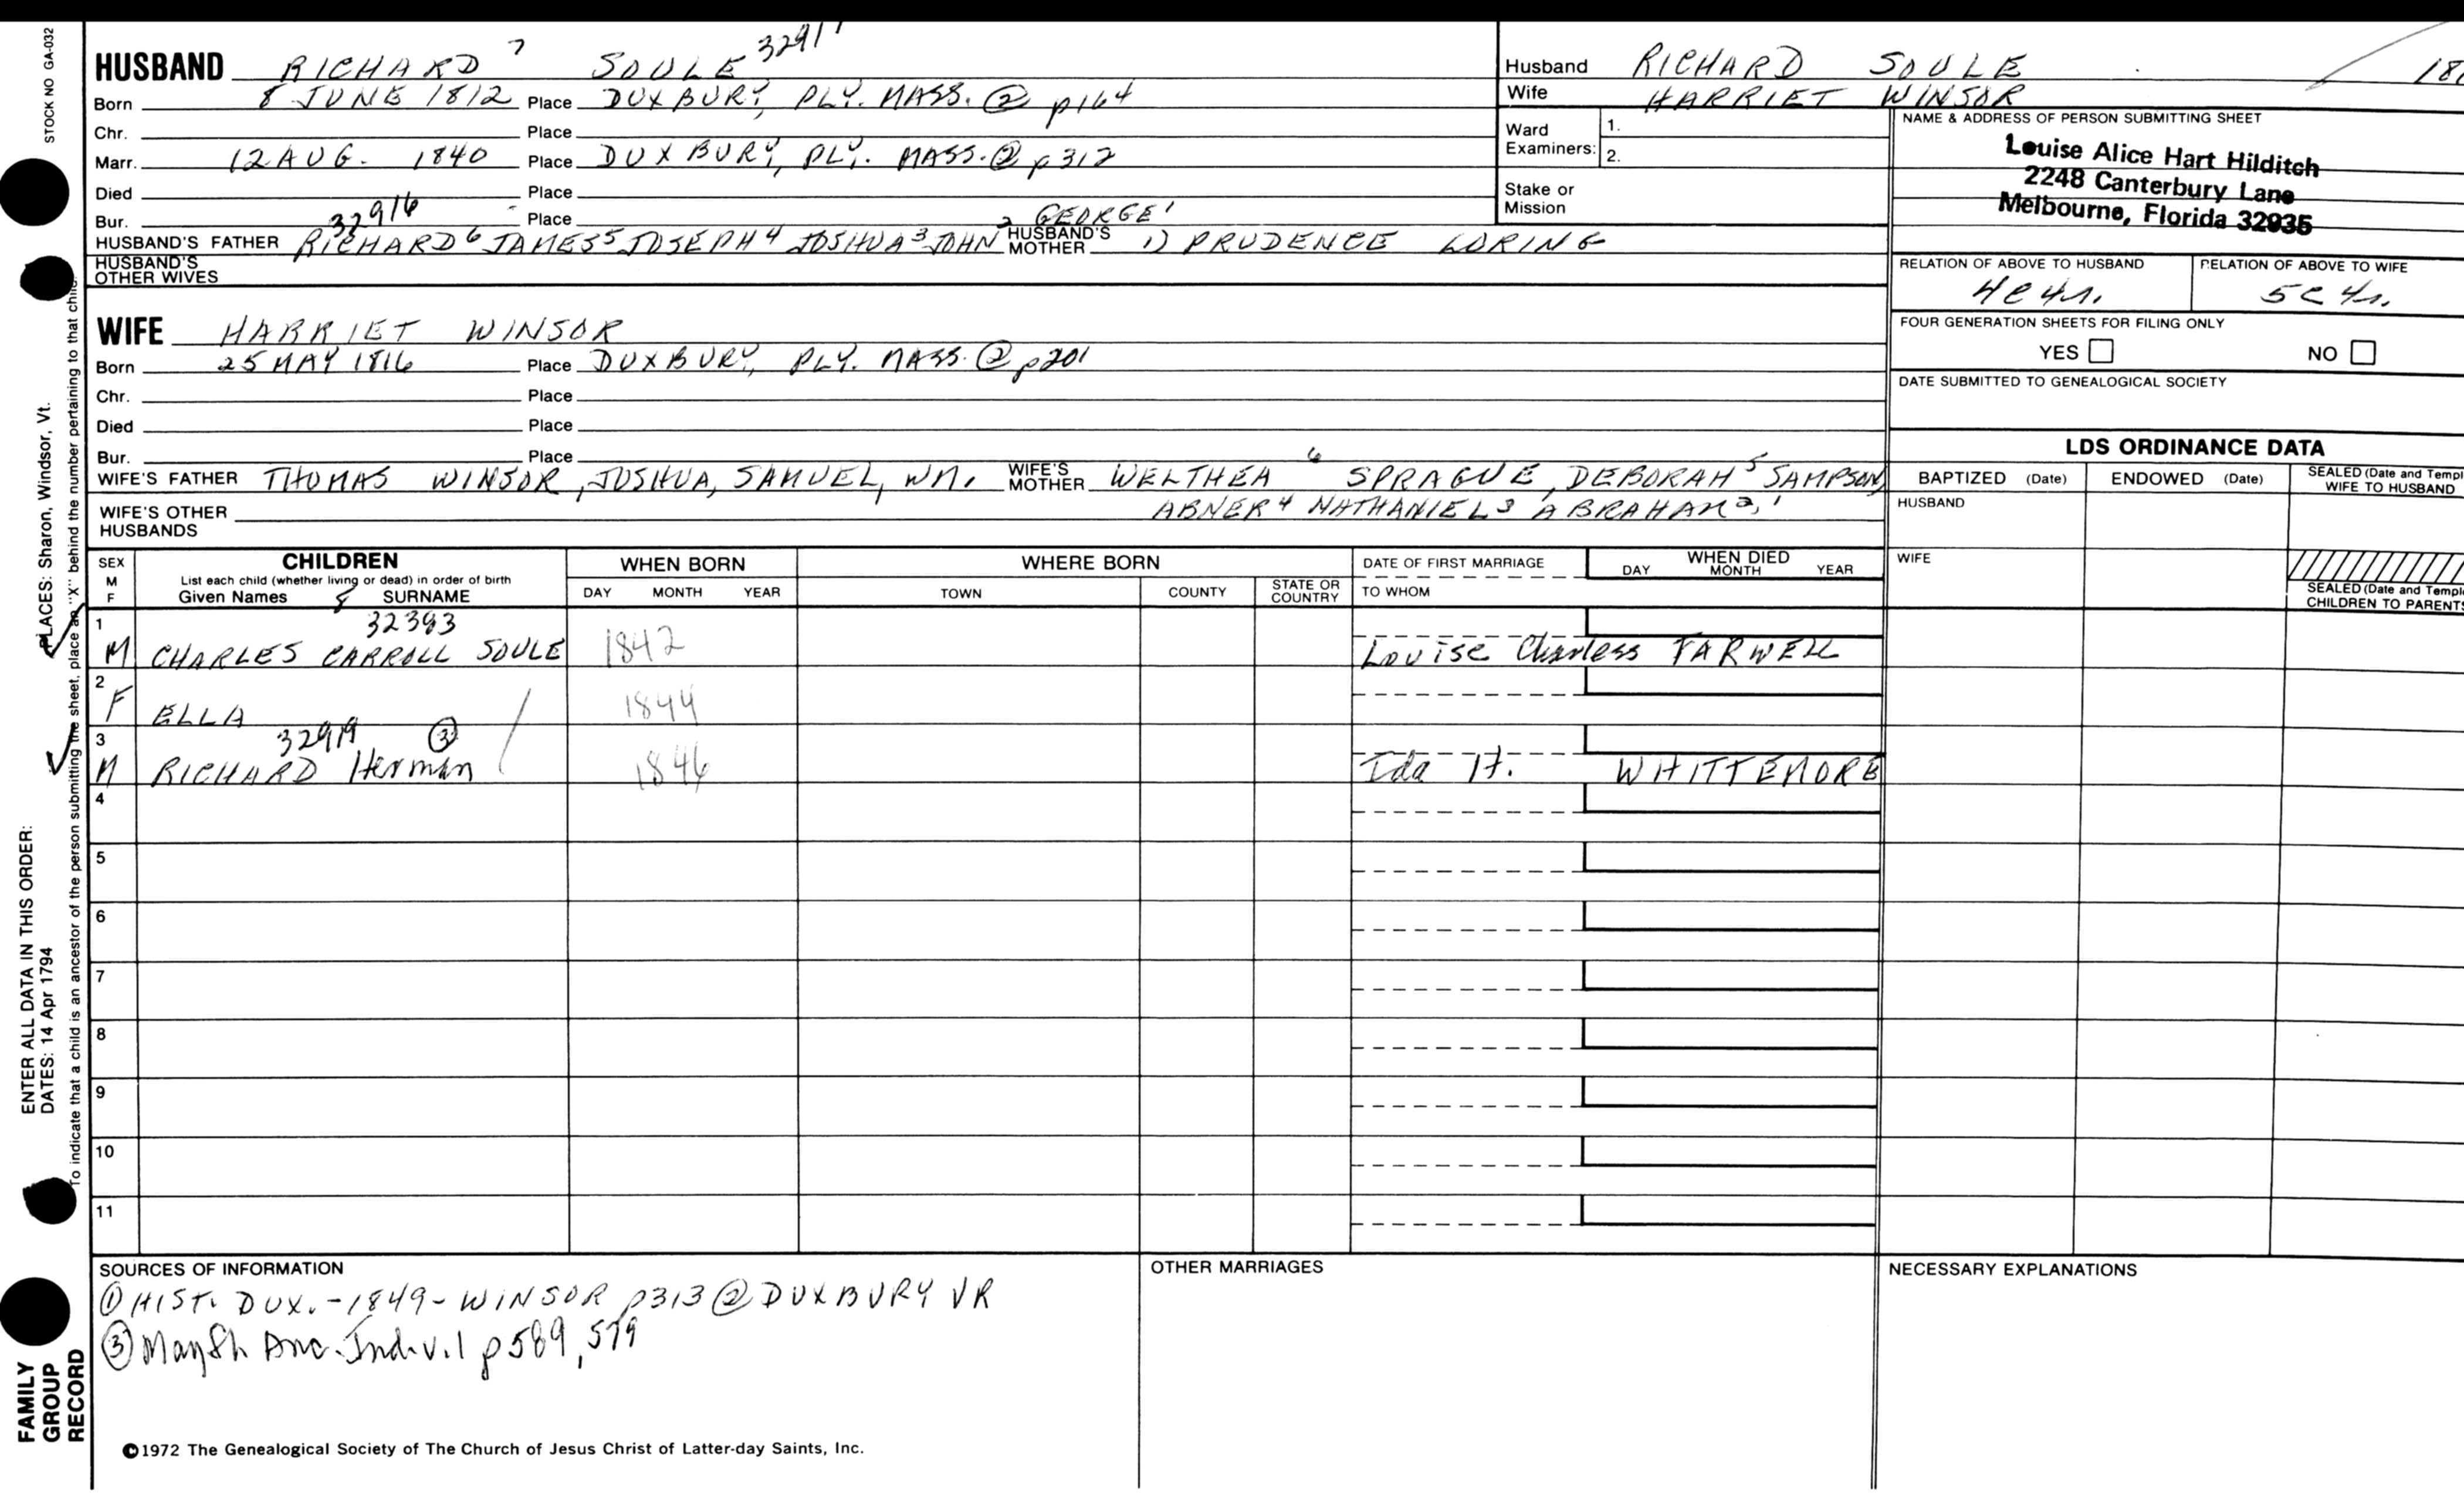 STOCK NO GA-032
HUSBAND RICHARD 7 SOULE 32917
Born 8 JUNE 1812 Place DUXBURY, PLY. MASS. ② p164
Chr. Place
Marr. 12 AUG. 1840 Place DUXBURY, PLY. MASS. ② p312
Died Place
Bur. Place
32916 2 GEORGE 1
HUSBAND'S FATHER RICHARD 6 JAMES 5 JOSEPH 4 JOSHUA 3 JOHN HUSBAND'S MOTHER 1) PRUDENCE LORING
HUSBAND'S OTHER WIVES
WIFE HARRIET WINSOR
Born 25 MAY 1816 Place DUXBURY, PLY. MASS. ② p201
Chr. Place
Died Place
Bur. Place
WIFE'S FATHER THOMAS WINSOR, JOSHUA, SAMUEL, WM. WIFE'S MOTHER WELTHEA 6 SPRAGUE, DEBORAH 5 SAMPSON
ABNER 4 NATHANIEL 3 ABRAHAM 2, 1
WIFE'S OTHER HUSBANDS
Husband RICHARD SOULE
Wife HARRIET WINSOR
Ward Examiners: 1.
2.
Stake or Mission
NAME & ADDRESS OF PERSON SUBMITTING SHEET
Louise Alice Hart Hilditch
2248 Canterbury Lane
Melbourne, Florida 32935
RELATION OF ABOVE TO HUSBAND RELATION OF ABOVE TO WIFE
4c4r. 5c4r.
FOUR GENERATION SHEETS FOR FILING ONLY
YES NO
DATE SUBMITTED TO GENEALOGICAL SOCIETY
LDS ORDINANCE DATA
BAPTIZED (Date) ENDOWED (Date) SEALED (Date and Templ
WIFE TO HUSBAND
HUSBAND
WIFE
SEALED (Date and Templ
CHILDREN TO PARENTS
SEX M F CHILDREN WHEN BORN WHERE BORN DATE OF FIRST MARRIAGE WHEN DIED
List each child (whether living or dead) in order of birth
Given Names 8 SURNAME DAY MONTH YEAR TOWN COUNTY STATE OR COUNTRY TO WHOM DAY MONTH YEAR
1 32393
M CHARLES CARROLL SOULE 1842 Louise Charless FARWELL
2
F ELLA 1844
3 32919 ③
M RICHARD Herman 1846 Ida H. WHITTEMORE
4
5
6
7
8
9
10
11
SOURCES OF INFORMATION
① HIST. DUX. - 1849 - WINSOR p313 ② DUXBURY VR
③ Mayfl. Anc. Ind. v.1 p 589, 579
OTHER MARRIAGES
NECESSARY EXPLANATIONS
©1972 The Genealogical Society of The Church of Jesus Christ of Latter-day Saints, Inc.
FAMILY
GROUP
RECORD
ENTER ALL DATA IN THIS ORDER:
DATES: 14 Apr 1794
PLACES: Sharon, Windsor, Vt.
To indicate that a child is an ancestor of the person submitting the sheet, place an "X" behind the number pertaining to that child.